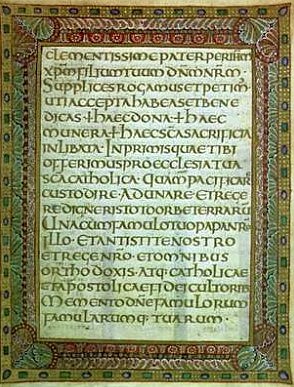 CLEMENTISSIME PATER PER IHM
XPM FILIUM TUUM DNM NRM
SUPPLICES ROGAMUS ET PETIM
UTI ACCEPTA HABEAS ET BENE
DICAS + HAEC DONA + HAEC
MUNERA + HAEC SCA SACRIFICIA
INLIBATA. IN PRIMIS QUAE TIBI
OFFERIMUS PRO ECCLESIA TUA
SCA CATHOLICA. QUAM PACIFICAR
CUSTODIRE. ADUNARE. ET REGE
RE DIGNERIS TOTO ORBE TERRARŪ
UNA CUM FAMULO TUO PAPA NRO
ILLO. ET ANTISTITE NOSTRO
ET REGE NRO. ET OMNIBUS
ORTHODOXIS. ATQ. CATHOLICAE
ET APOSTOLICAE FIDEI CULTORIB
MEMENTO DNE FAMULORUM
FAMULARUMQ. TUARUM.